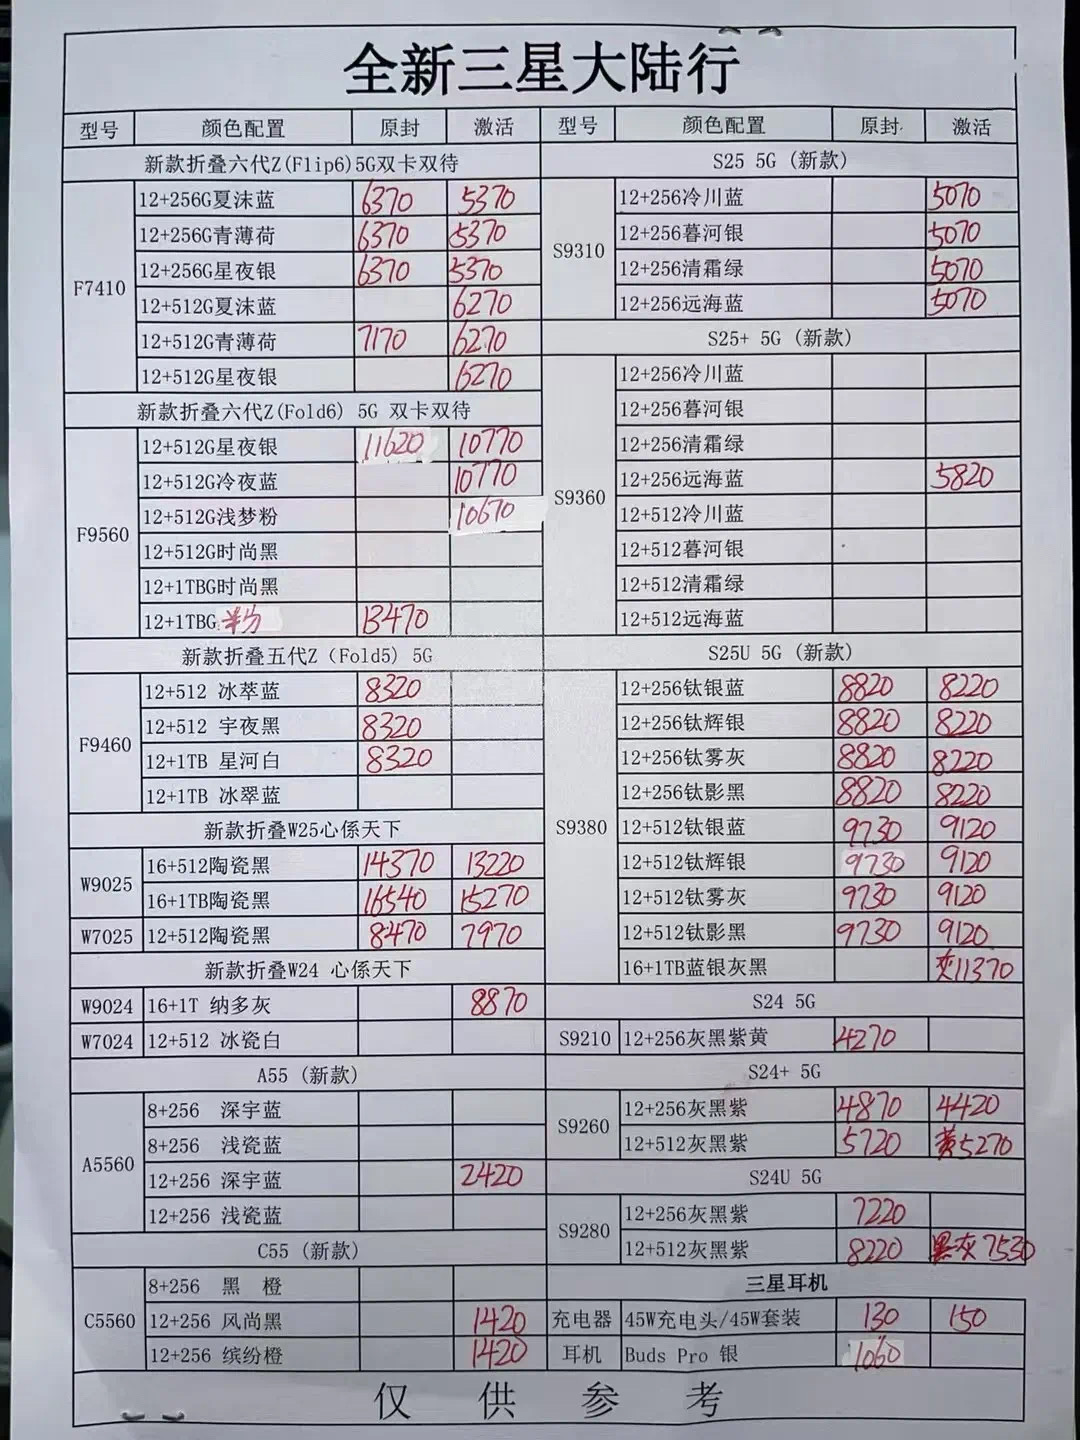 全新三星大陆行
型号 颜色配置 原封 激活
新款折叠六代Z(Flip6)5G双卡双待
F7410
12+256G夏沫蓝 6370 5370
12+256G青薄荷 6370 5370
12+256G星夜银 6370 5370
12+512G夏沫蓝 6270
12+512G青薄荷 7170 6270
12+512G星夜银 6270
新款折叠六代Z(Fold6) 5G 双卡双待
F9560
12+512G星夜银 11620 10770
12+512G冷夜蓝 10770
12+512G浅梦粉 10670
12+512G时尚黑
12+1TBG时尚黑
12+1TBG 13470
新款折叠五代Z（Fold5）5G
F9460
12+512 冰萃蓝 8320
12+512 宇夜黑 8320
12+1TB 星河白 8320
12+1TB 冰翠蓝
新款折叠W25心係天下
W9025
16+512陶瓷黑 14370 13220
16+1TB陶瓷黑 16540 15270
W7025 12+512陶瓷黑 8470 7970
新款折叠W24 心係天下
W9024 16+1T 纳多灰 8870
W7024 12+512 冰瓷白
A55（新款）
A5560
8+256 深宇蓝
8+256 浅瓷蓝
12+256 深宇蓝 2420
12+256 浅瓷蓝
C55（新款）
C5560
8+256 黑 橙
12+256 风尚黑 1420
12+256 缤纷橙 1420
型号 颜色配置 原封 激活
S25 5G（新款）
S9310
12+256冷川蓝 5070
12+256暮河银 5070
12+256清霜绿 5070
12+256远海蓝 5070
S25+ 5G（新款）
S9360
12+256冷川蓝
12+256暮河银
12+256清霜绿
12+256远海蓝 5820
12+512冷川蓝
12+512暮河银
12+512清霜绿
12+512远海蓝
S25U 5G（新款）
S9380
12+256钛银蓝 8820 8220
12+256钛辉银 8820 8220
12+256钛雾灰 8820 8220
12+256钛影黑 8820 8220
12+512钛银蓝 9730 9120
12+512钛辉银 9730 9120
12+512钛雾灰 9730 9120
12+512钛影黑 9730 9120
16+1TB蓝银灰黑 灰11370
S24 5G
S9210 12+256灰黑紫黄 4270
S24+ 5G
S9260
12+256灰黑紫 4870 4420
12+512灰黑紫 5720 黄5270
S24U 5G
S9280
12+256灰黑紫 7220
12+512灰黑紫 8220 黑灰7530
三星耳机
充电器 45W充电头/45W套装 130 150
耳机 Buds Pro 银 1060
仅供参考